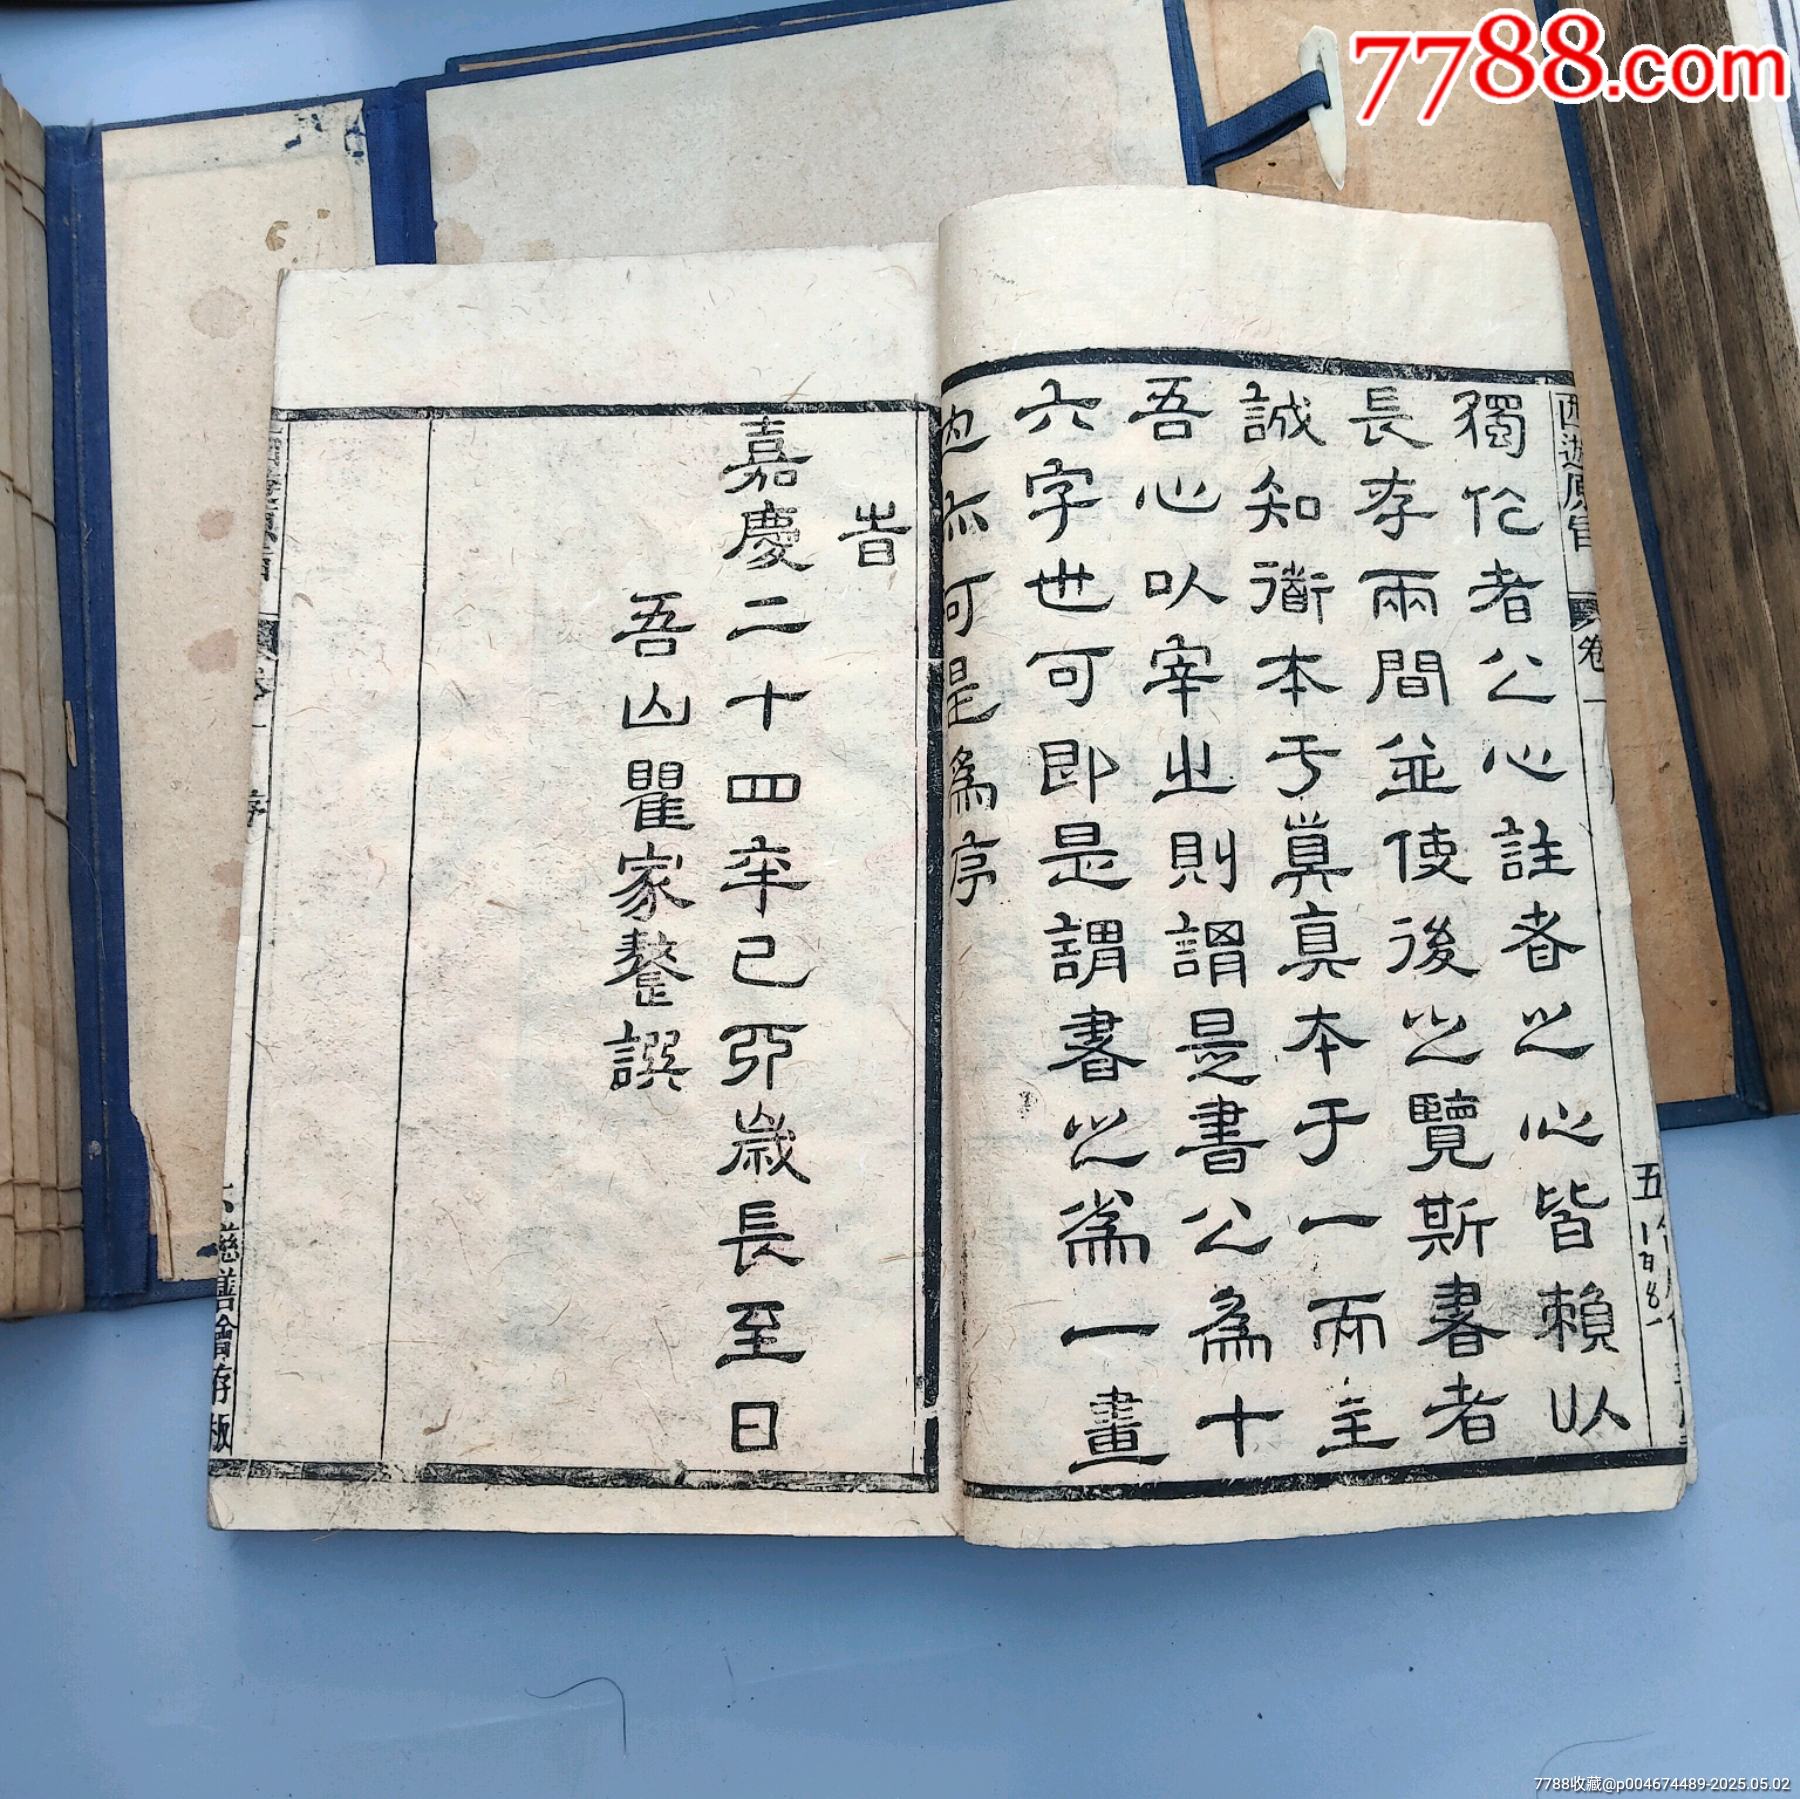 7788.com
西遊原旨
卷一
五
獨伀者公心註者之心皆賴以
長存兩間並使後之覽斯書者
誠知衜本于眞真本于一而主
吾心以宰之則謂是書公為十
六字也可即是謂書之為一畫
也亦可是為序
旹
嘉慶二十四年己卯歲長至日
吾山瞿家鏊譔
序
慈善會存板
7788收藏@p004674489-2025.05.02